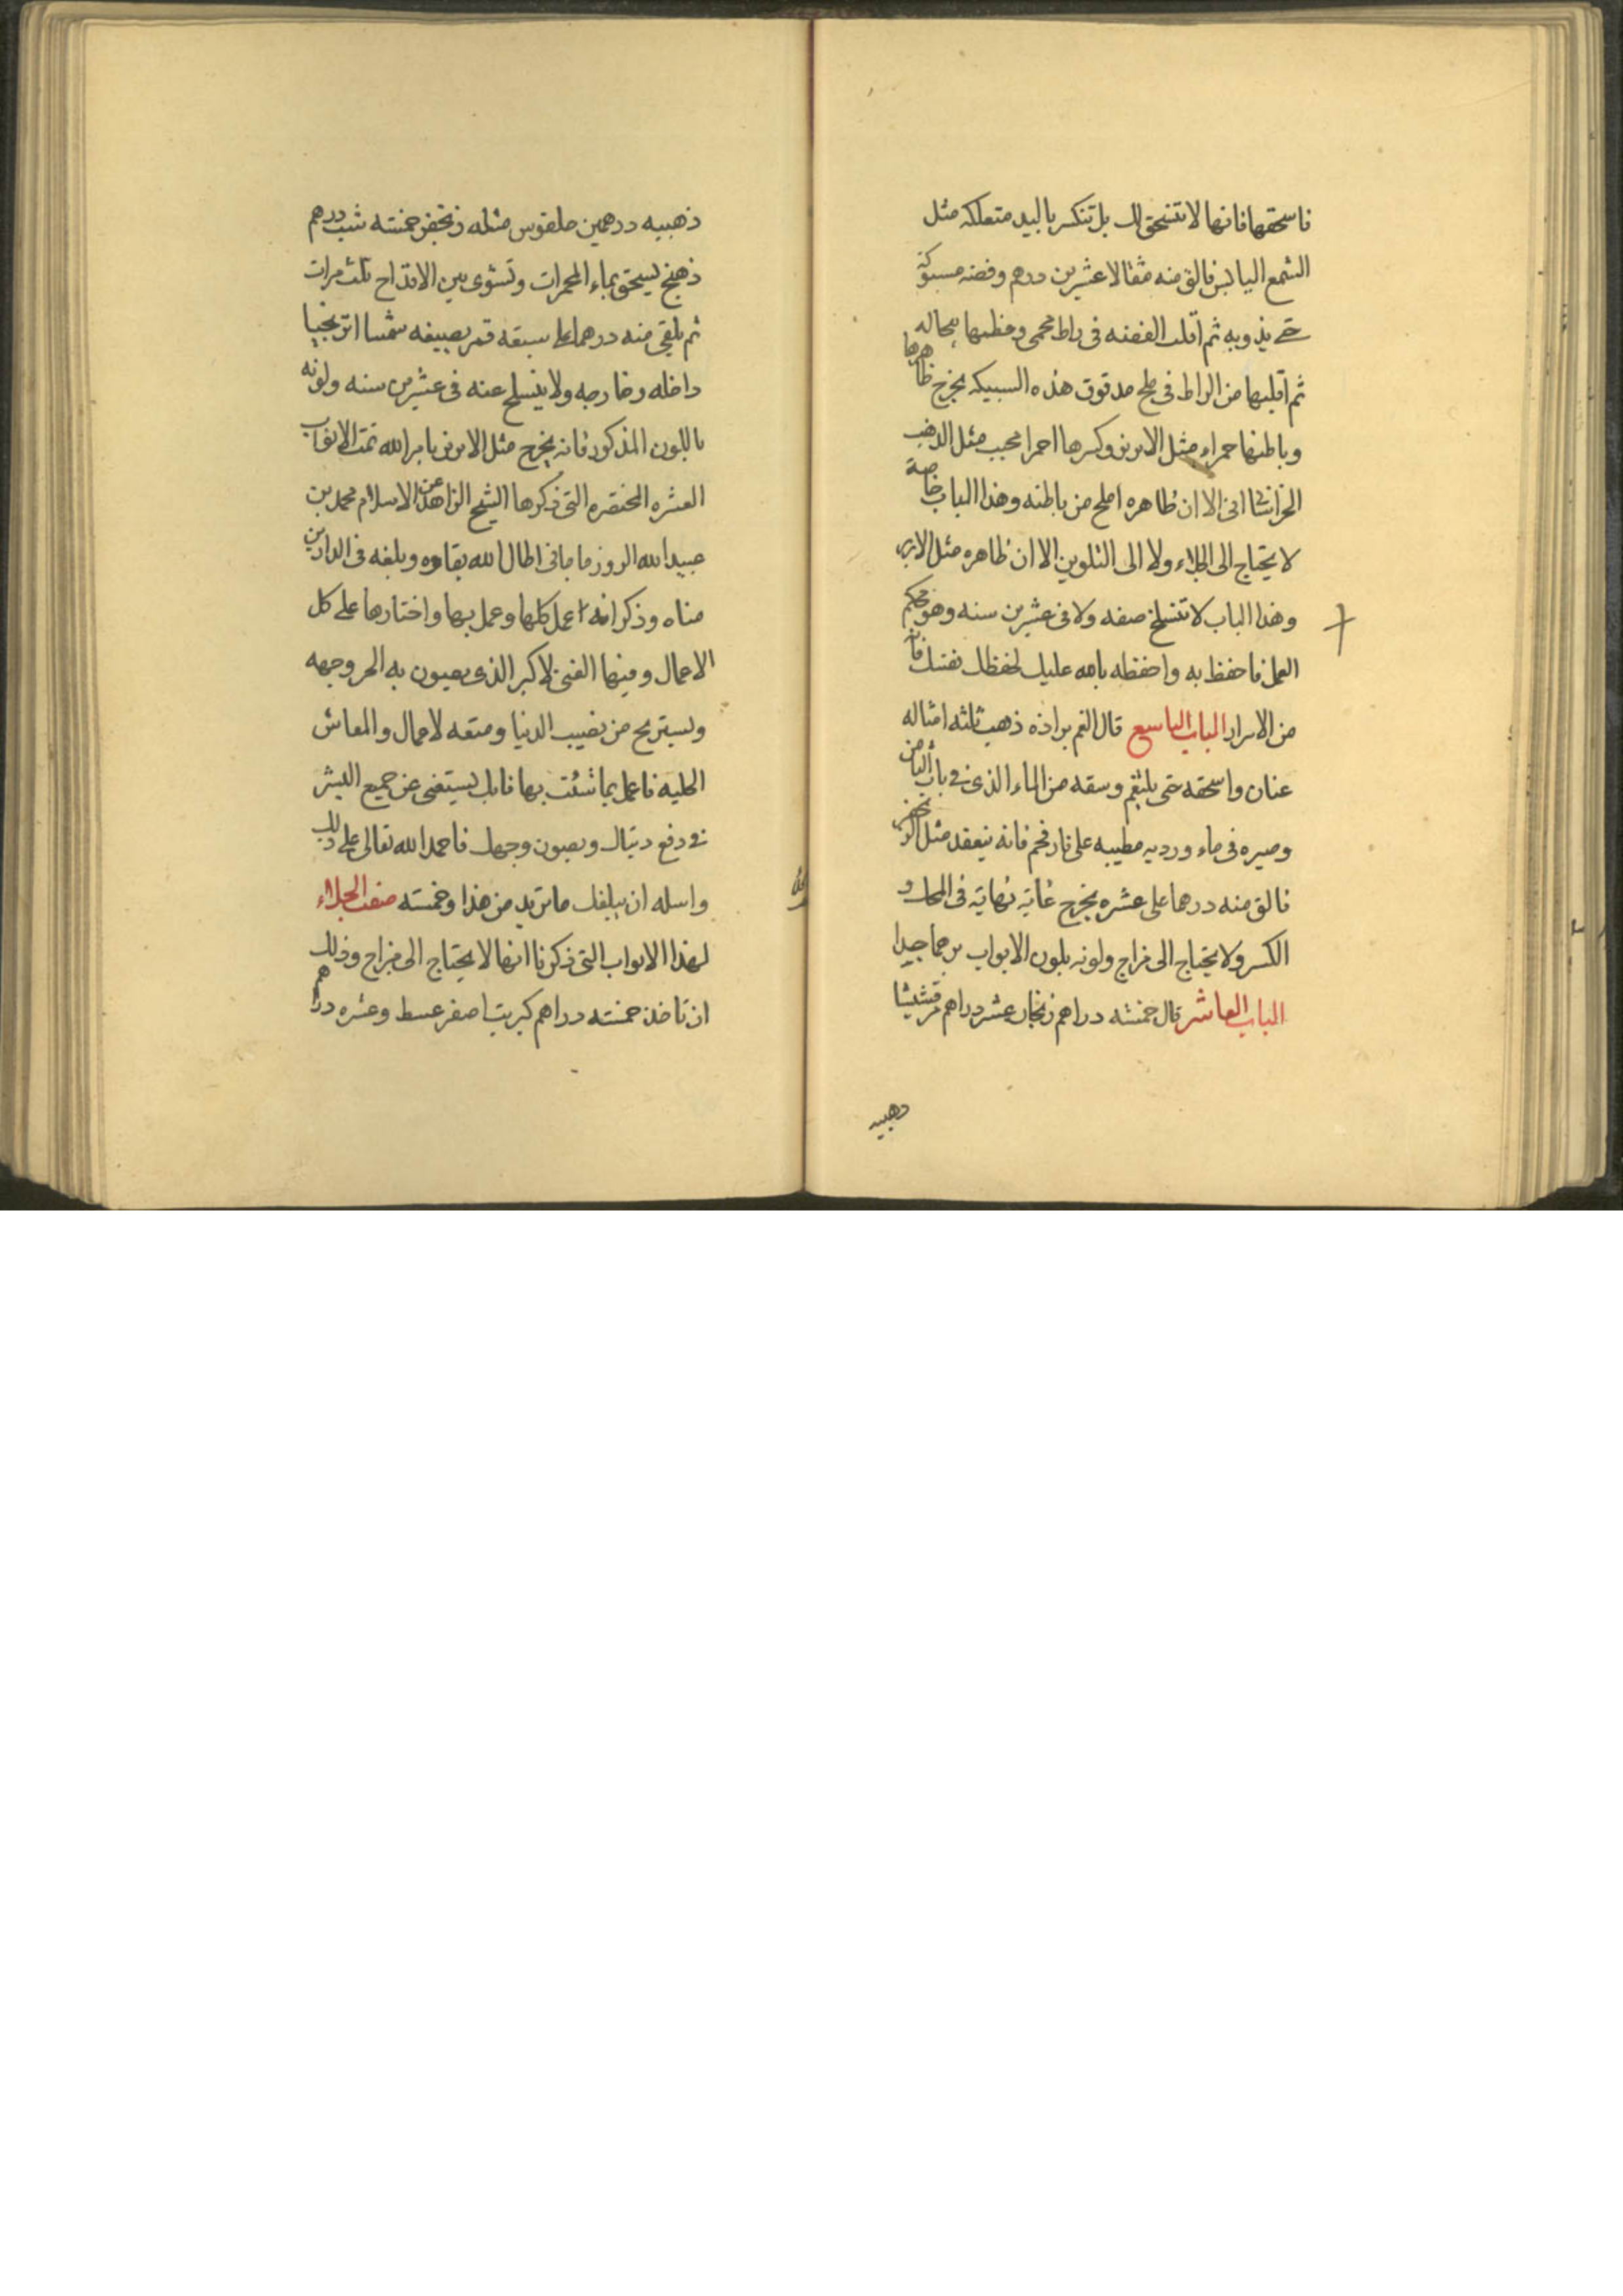 فاسحقها فانها لا تنسحق لك بل تنكسر باليد متعلكه مثل
الشمع اليابس فالق منه مثقالا عشرين درهم وفضه مسبوكة
حتى يذوبه ثم اقلب الفضه في راط محمى وغطيها بحاله
ثم اقلبها من الراط في ملح مدقوق هذه السبيكه يخرج ظاهرها
وباطنها حمراء مثل الابريز وكسرها احمرا محبب مثل الذهب
الا ان ظاهره املح من باطنه وهذا الباب خاصة
لا يحتاج الى الجلاء ولا الى التلوين الا ان ظاهره مثل الابريز
وهذا الباب لا تنسلخ صفه ولا في عشرين سنه وهو محكم
العمل فاحفظ به واحفظه بالله عليك لحفظك نفسك فانه
من الاسرار الباب التاسع قال الغم براده ذهب ثلثه امثاله
عنان واسحقه حتى يلتغم وسقه من الماء الذي في باب الثامن
وصيره في ماء ورديه مطيبه على نار فحم فانه ينعقد مثل الزنجفر
فالق منه درهما على عشره يخرج غايه نهايه في المحك و
الكسر ولا يحتاج الى مزاج ولونه بلون الابواب برحما جيدا
الباب العاشر قال خمسته دراهم زنجار عشر دراهم مرقشيثا
ذهبيه
ذهبيه درهمين ملقوس مثله زنجفر خمسته شب درهم
ذهنج يسحق بماء المحمرات وتشوى بين الاقداح ثلث مرات
ثم يلقى منه درهما على سبعه قمر يصبغه شمسا اترنجيا
داخله وخارجه ولا ينسلخ عنه في عشرين سنه ولونه
باللون المذكور فانه يخرج مثل الابريز بامر الله تمت الابواب
العشره المختصره التي ذكرها الشيخ الزاهد عز الاسلام محمد بن
عبيد الله الروزماماني اطال الله بقاوه وبلغه في الدارين
مناه وذكر انه اعمل كلها وعمل بها واختارها على كل
الاعمال وفيها الغنى الاكبر الذي يصون به الحر وجهه
ويستريح من نصيب الدنيا ومتعه لاعمال والمعاش
الحليه فاعمل بما شئت بها فانك يستغنى عن جميع البشر
في دفع وبصون وجهك فاحمد الله تعالى على ذلك
واسله ان يبلغك ما تريد من هذا وخمسته صفت الجلاء
لهذا الابواب التي ذكرنا انها لا يحتاج الى مزاج وذلك
ان تاخذ خمسته دراهم كبريت اصفر عسط وعشره دراهم